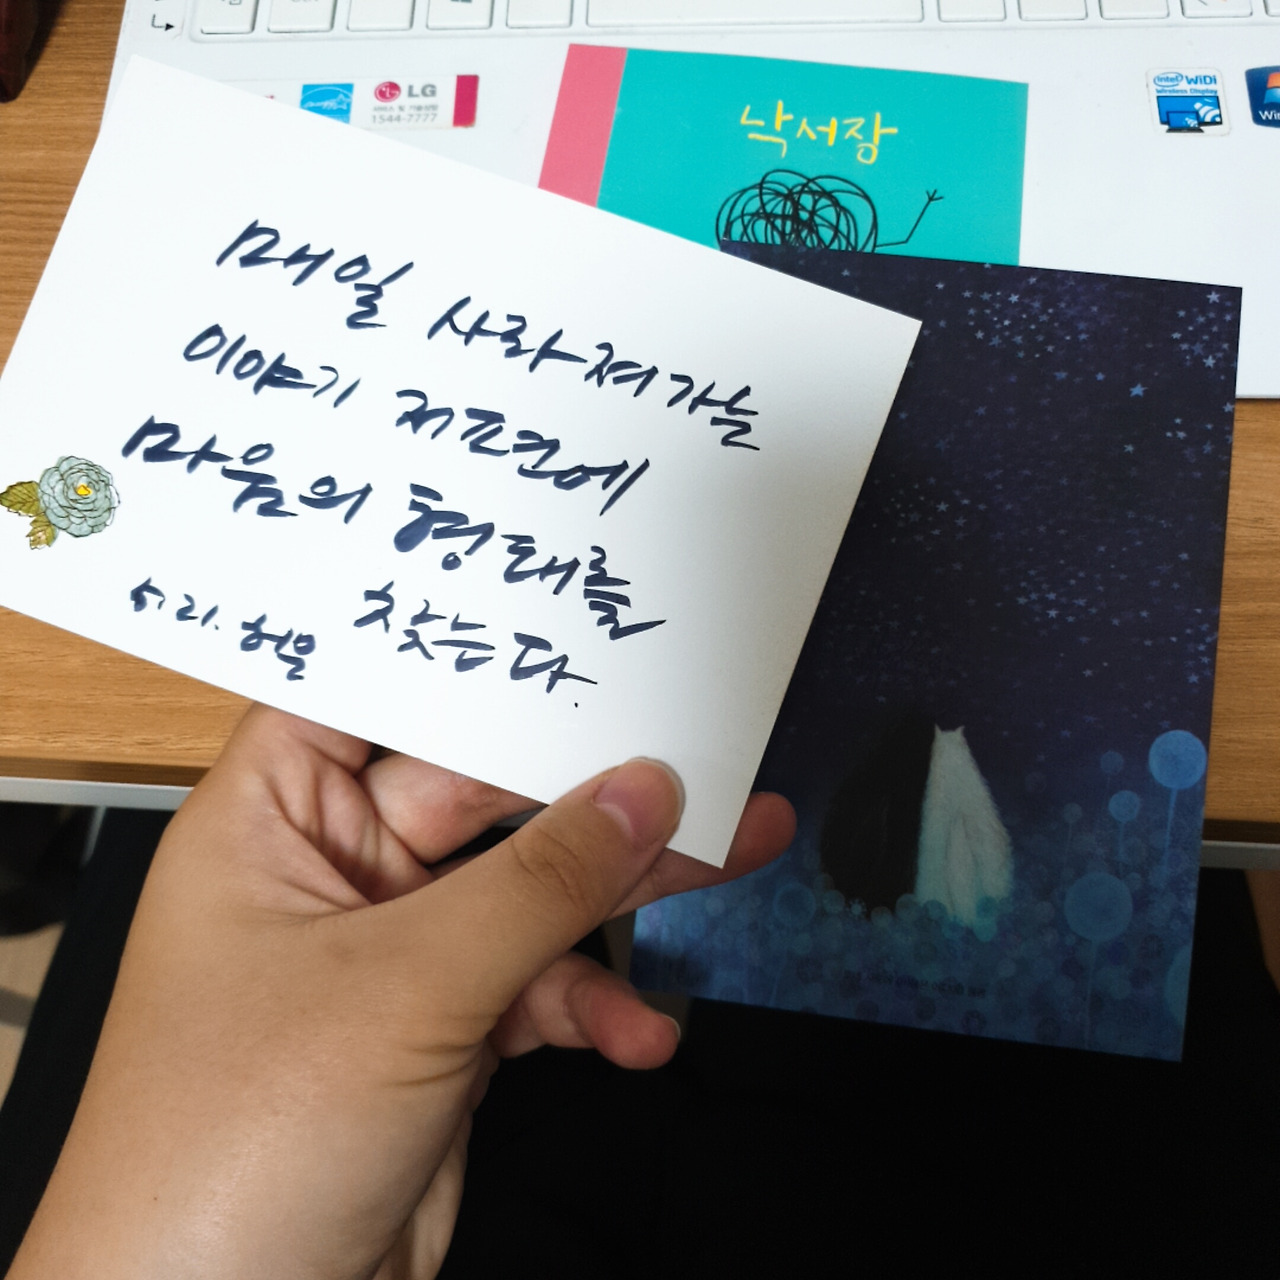 LG
1544-7777
intel WiDi
Wireless Display
낙서장
매일 사라져가는
이야기 저편에
마음의 형태를
찾는다.
5.21. 허울